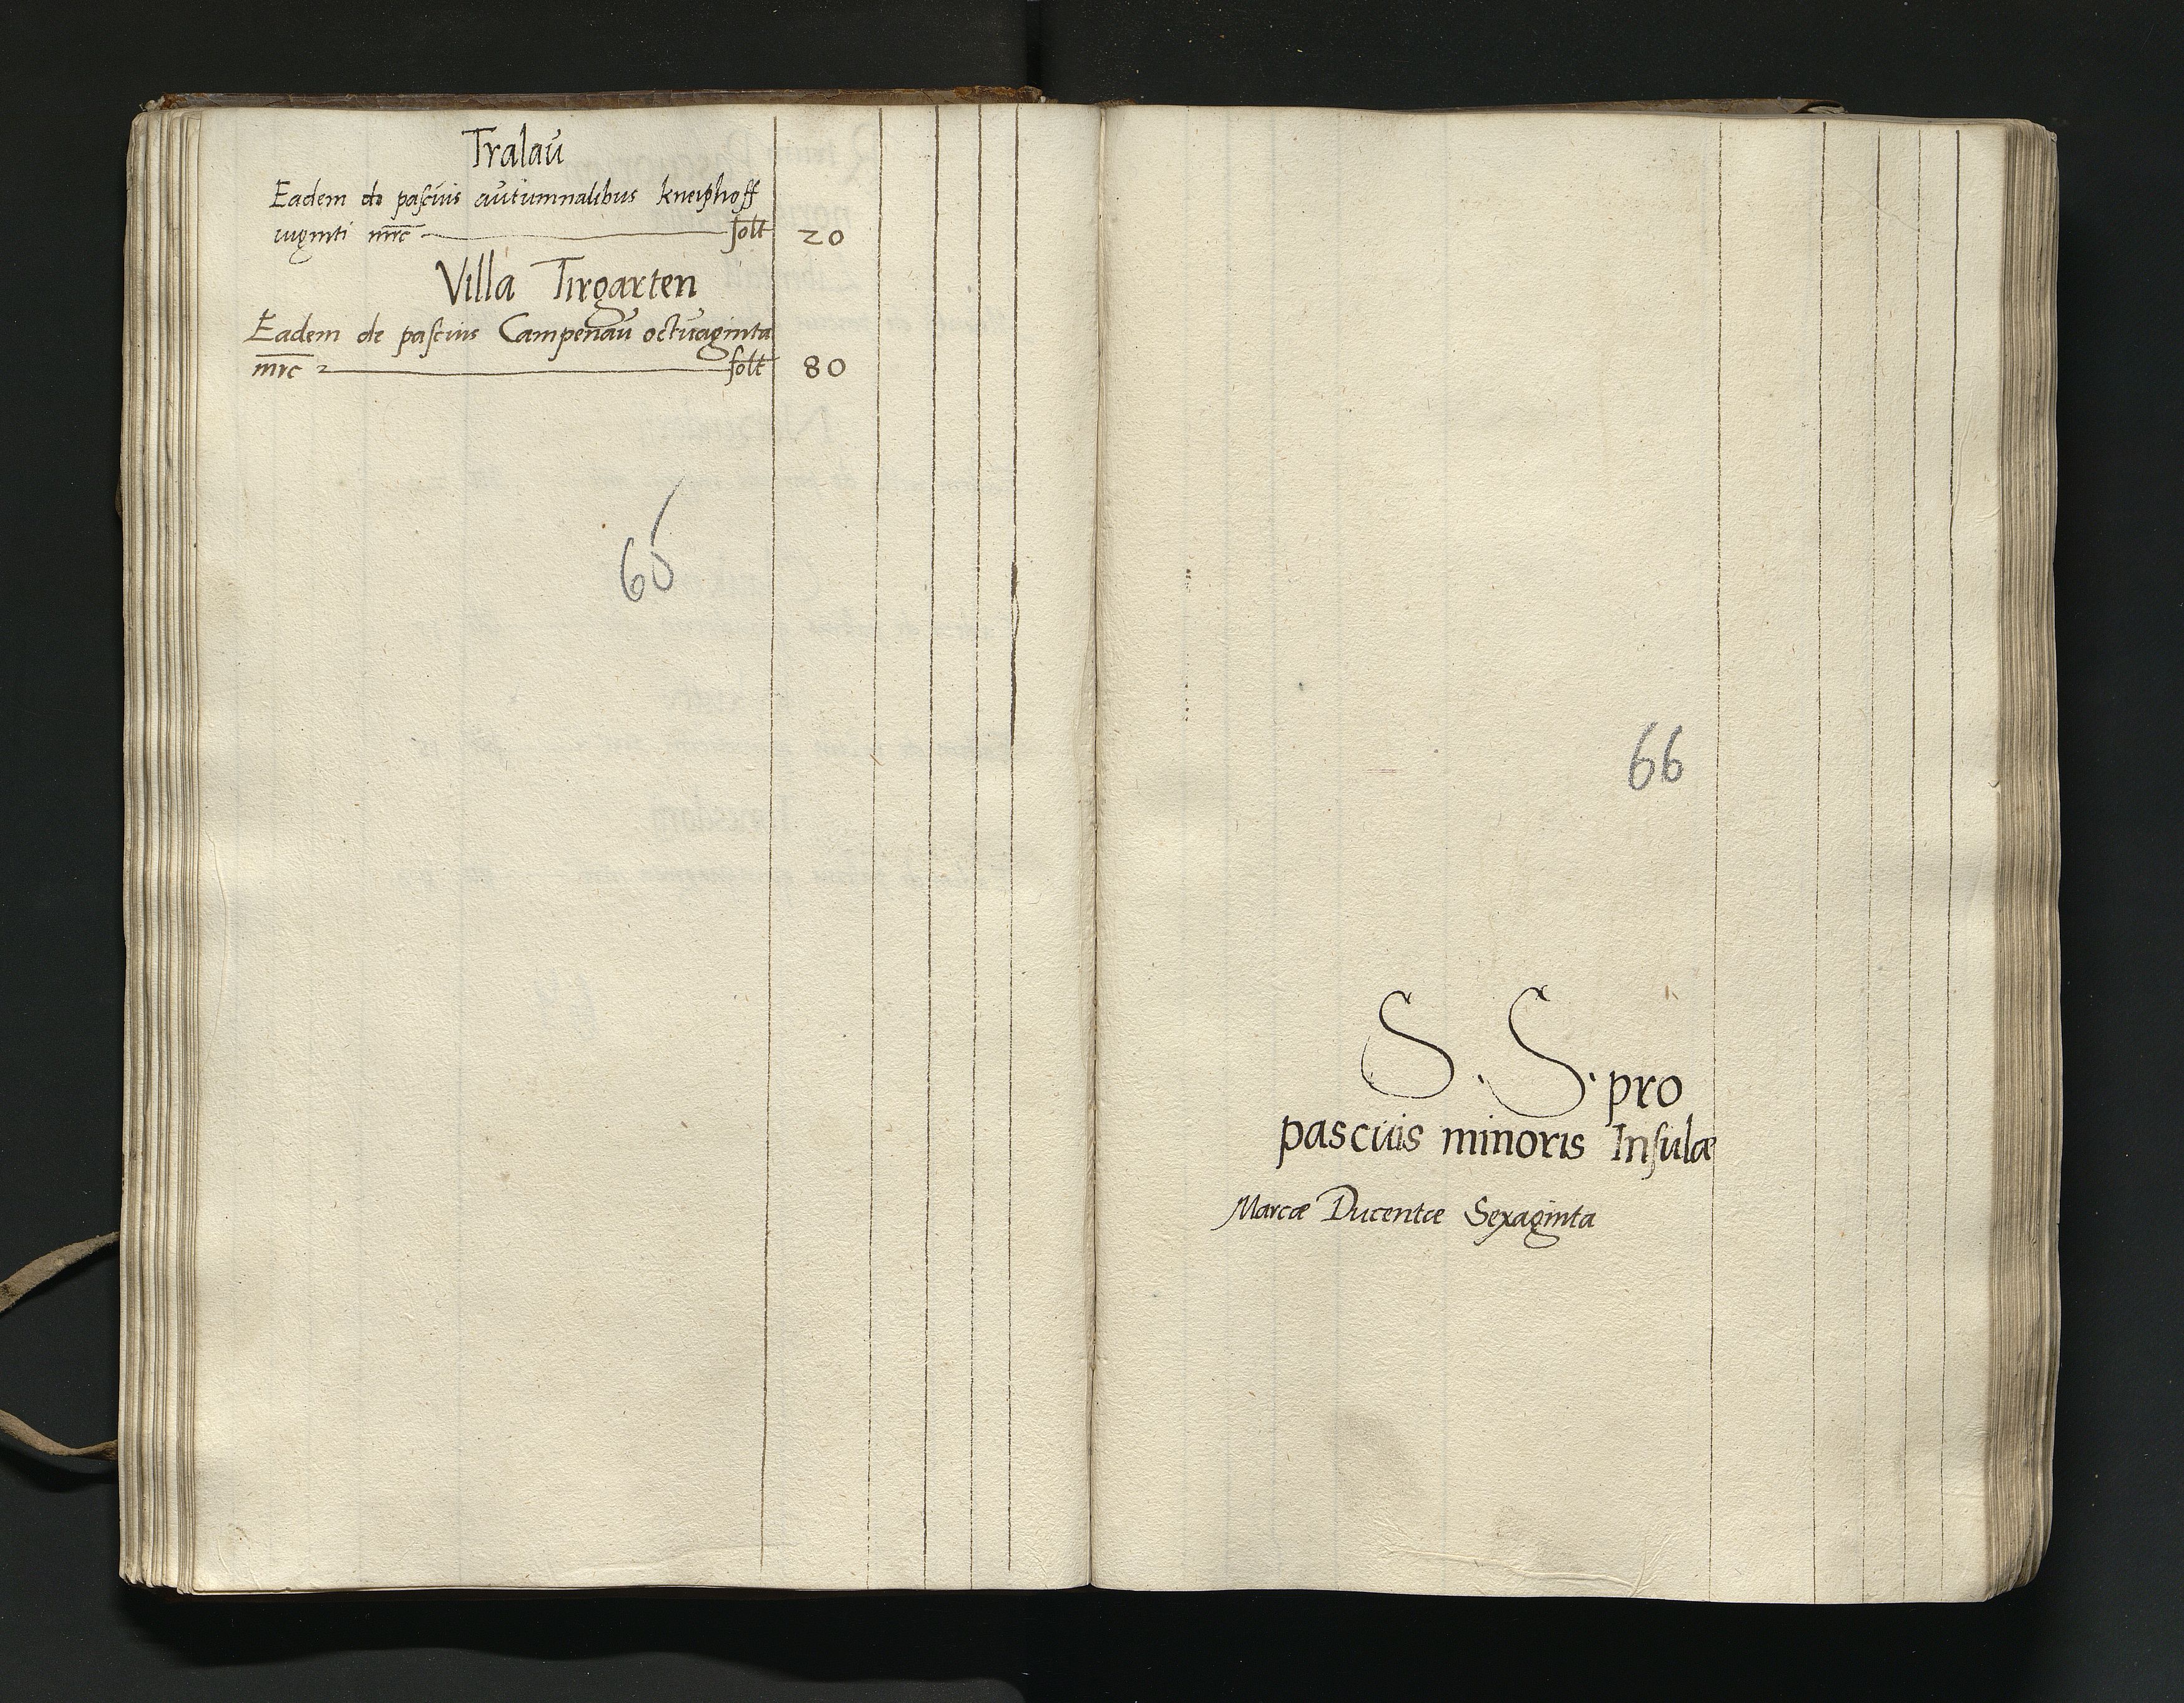 Tralaŭ
Eadem de pascŭis aŭtumnalibus kneiphoff
uiginti mrc solt 20
Villa Tirgarten
Eadem de pascuis Campenaŭ octŭaginta
mrc solt 80
65
66
S. S. pro
pascŭis minoris Insulæ
Marcæ Ducentæ Sexaginta